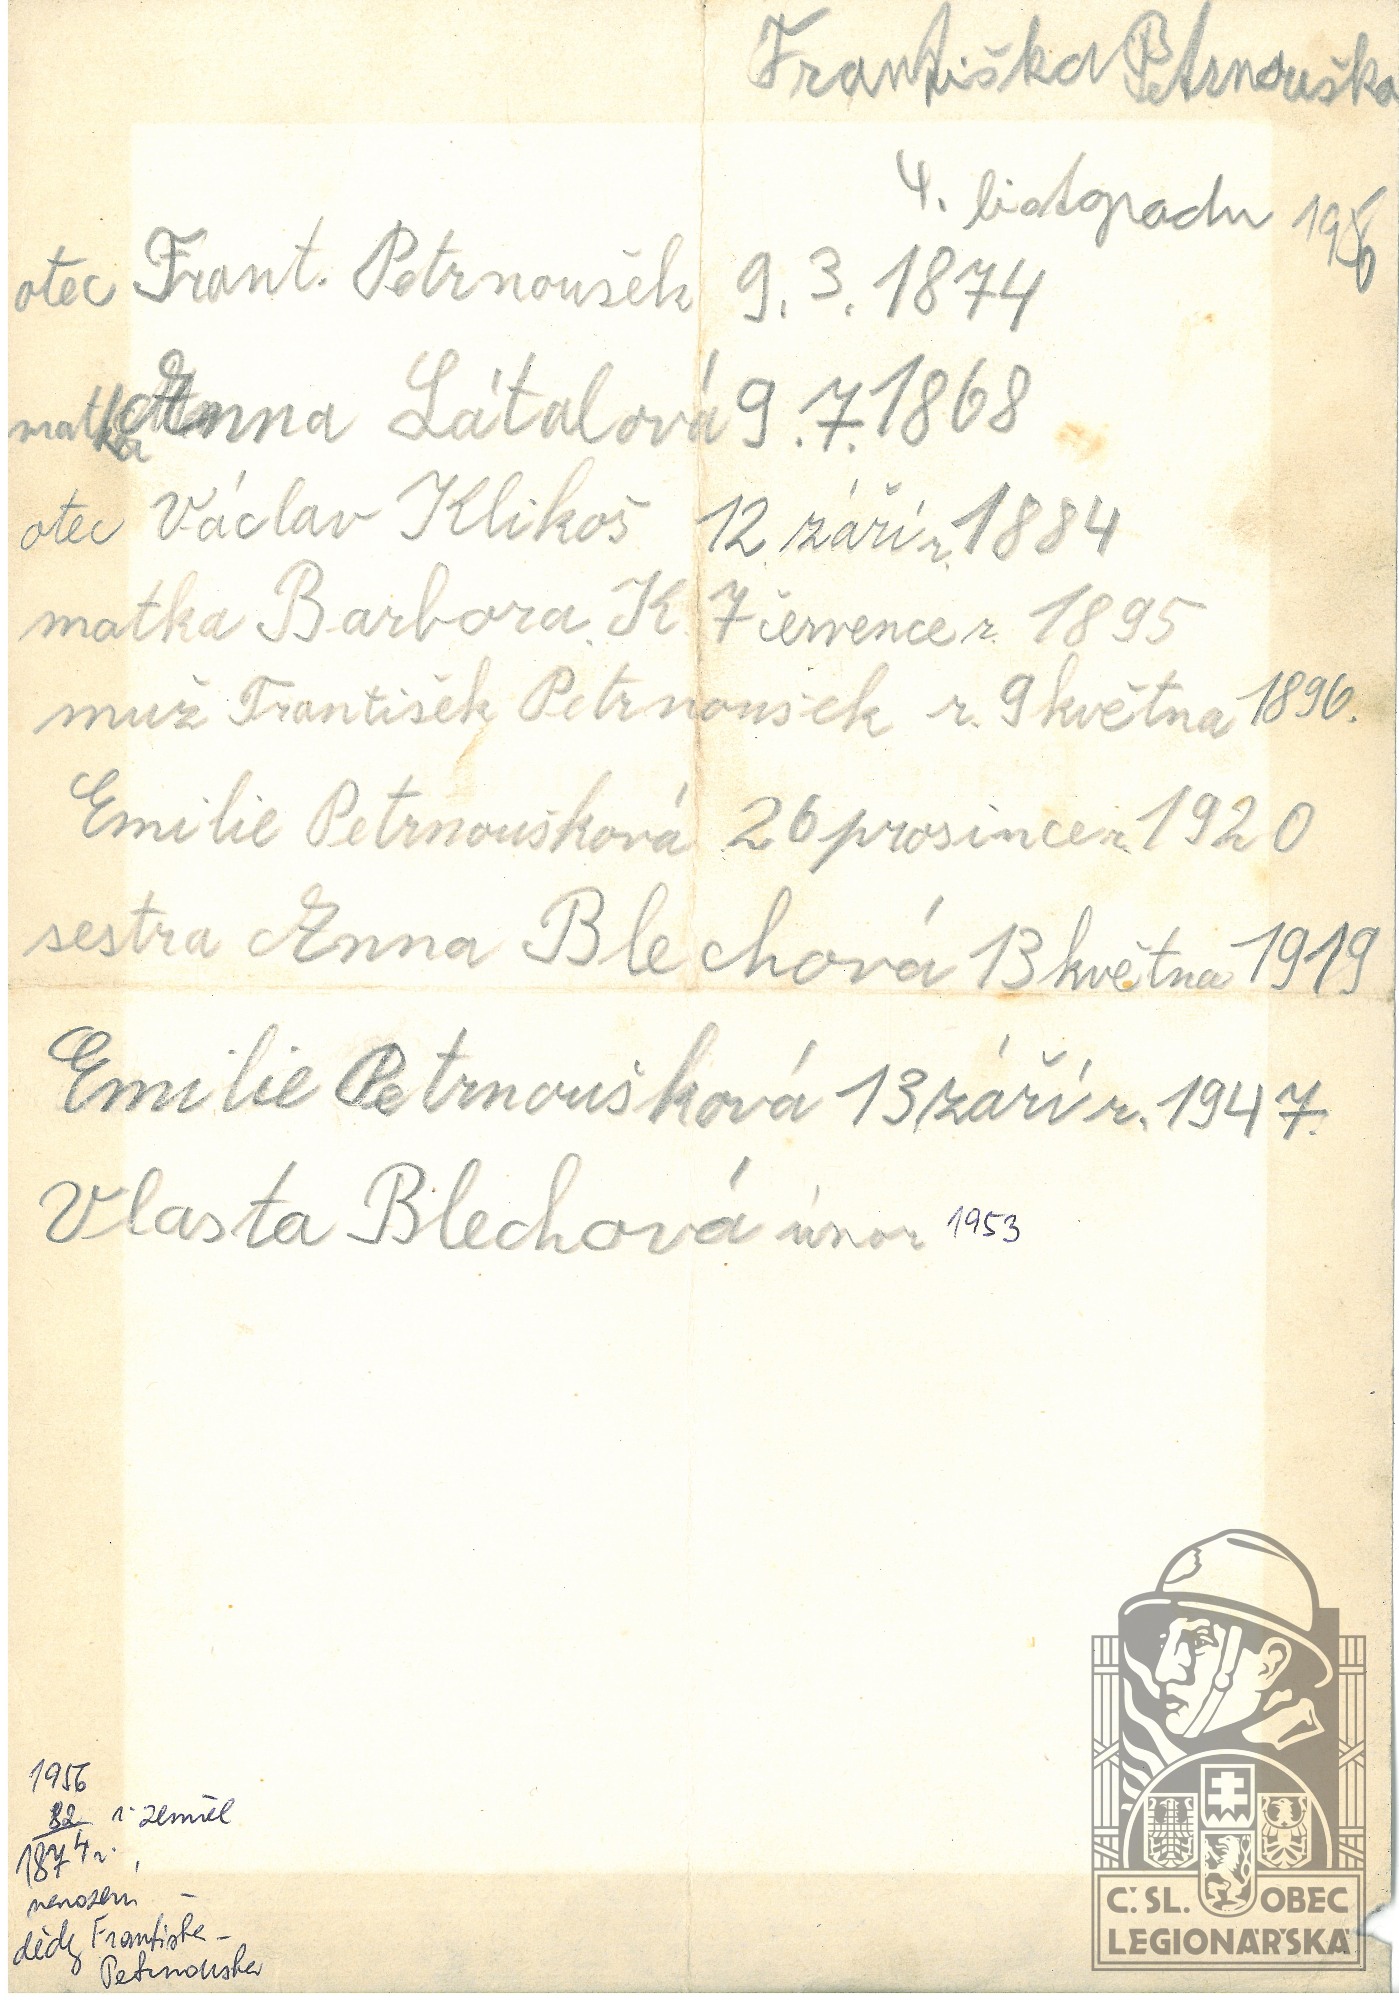 Františka Petrnouška
4. listopadu 1956
otec Frant. Petrnoušek 9. 3. 1874
matka Anna Látalová 9. 7. 1868
otec Václav Klikoš 12 září r. 1884
matka Barbora K. 7 července r. 1895
muž František Petrnoušek r. 9 května 1896.
Emilie Petrnoušková 26 prosince r. 1920
sestra Anna Blechová 13 května 1919
Emilie Petrnoušková 13 září r. 1947.
Vlasta Blechová únor 1953
1956
82 r. zemřel
1874 r.
narození
dědy Františka
Petrnouška
Č. SL. OBEC
LEGIONÁŘSKÁ